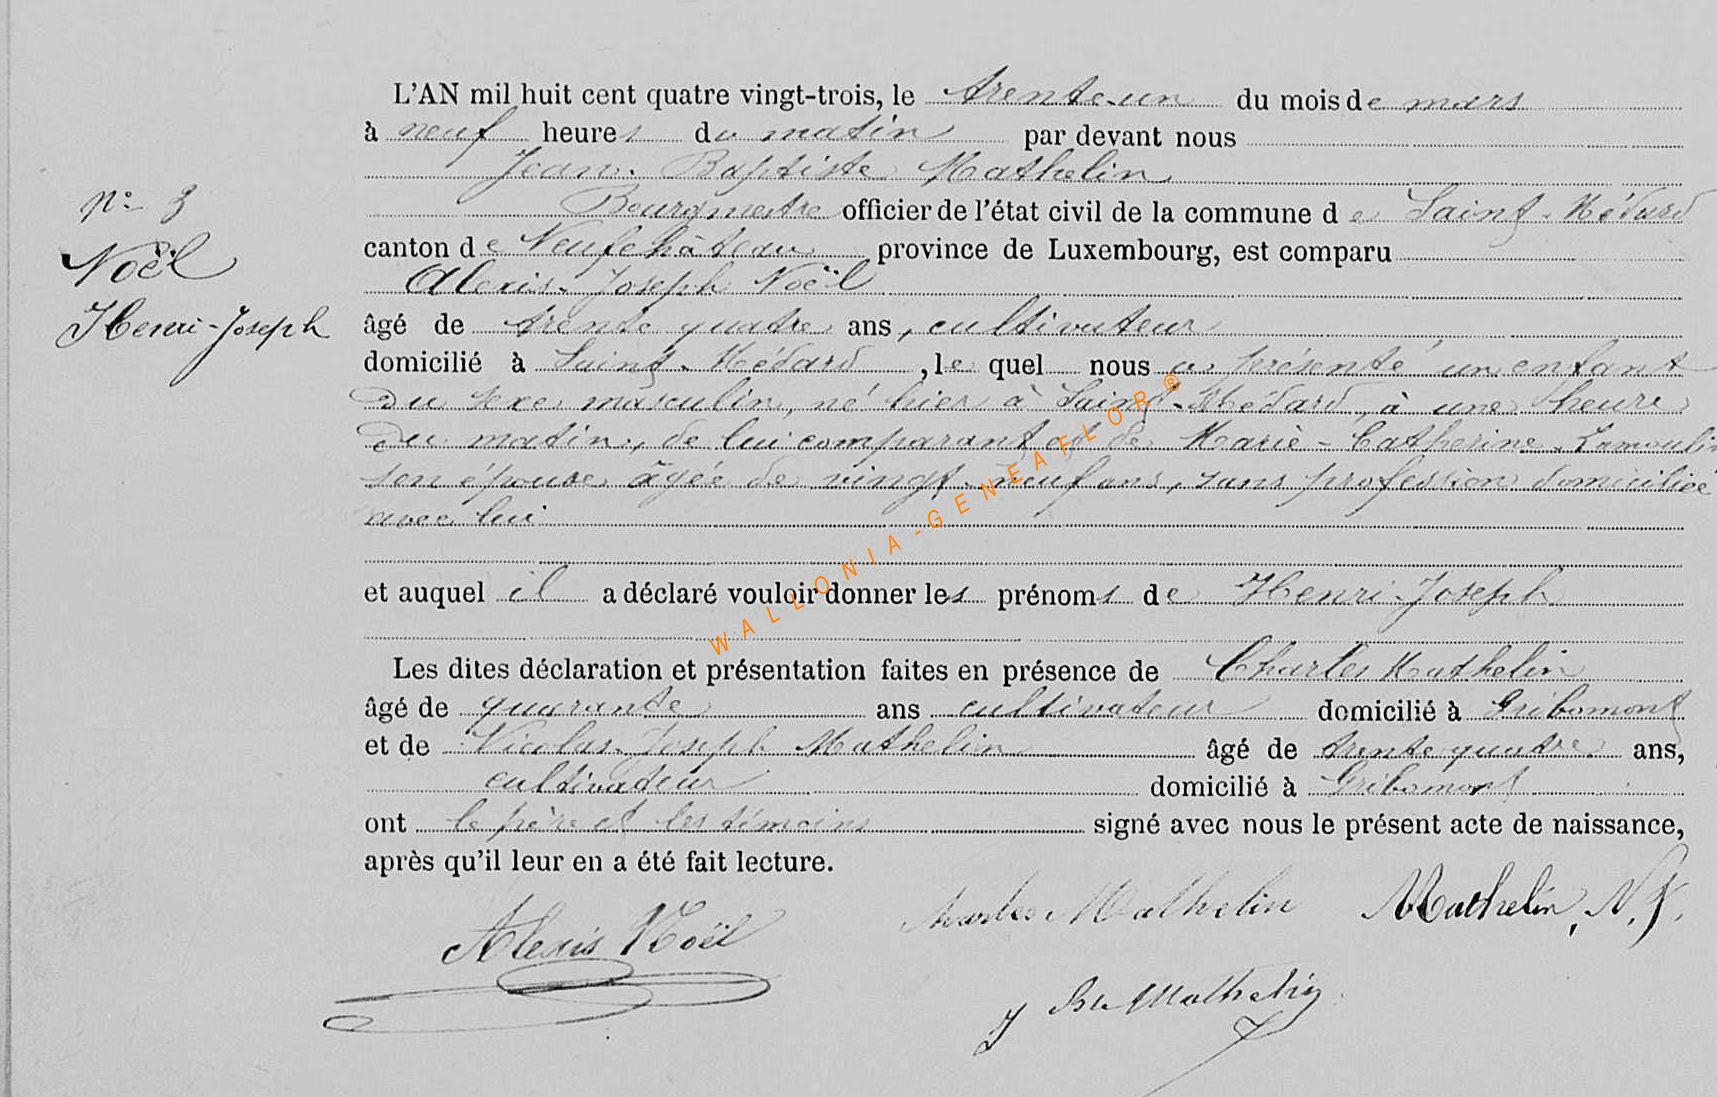 L'AN mil huit cent quatre vingt-trois, le trente-un du mois de mars
à neuf heures du matin par devant nous
Jean-Baptiste Mathelin
Bourgmestre officier de l'état civil de la commune de Saint-Médard
canton de Neufchâteau province de Luxembourg, est comparu
Alexis-Joseph Noël
âgé de trente quatre ans, cultivateur
domicilié à Saint-Médard, le quel nous a présenté un enfant
du sexe masculin, né hier à Saint-Médard, à une heure
du matin, de lui comparant et de Marie-Catherine Lamoulin
son épouse âgée de vingt-neuf ans, sans profession domiciliée
avec lui
et auquel il a déclaré vouloir donner les prénoms de Henri-Joseph
Les dites déclaration et présentation faites en présence de Charles Mathelin
âgé de quarante ans cultivateur domicilié à Gribomont
et de Nicolas-Joseph Mathelin âgé de trente quatre ans,
cultivateur domicilié à Gribomont
ont le père et les témoins signé avec nous le présent acte de naissance,
après qu'il leur en a été fait lecture.
Nº 3
Noël
Henri-Joseph
Alexis Noël
Charles Mathelin
Mathelin, N. J.
J Bte Mathelin
WALLONIA-GENEAFLOR®